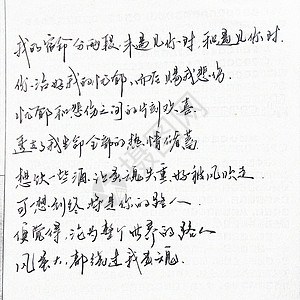 我的宿命分两段，未遇见你时，和遇见你时。
你治好我的忧郁，而后赐我悲伤。
忧郁和悲伤之间的片刻欢喜
透支了我生命全部的热情储蓄。
想饮一些酒，让灵魂失重，好被风吹走。
可一想到终将是你的路人
便觉得，沦为整个世界的路人
风虽大，都绕过我灵魂。